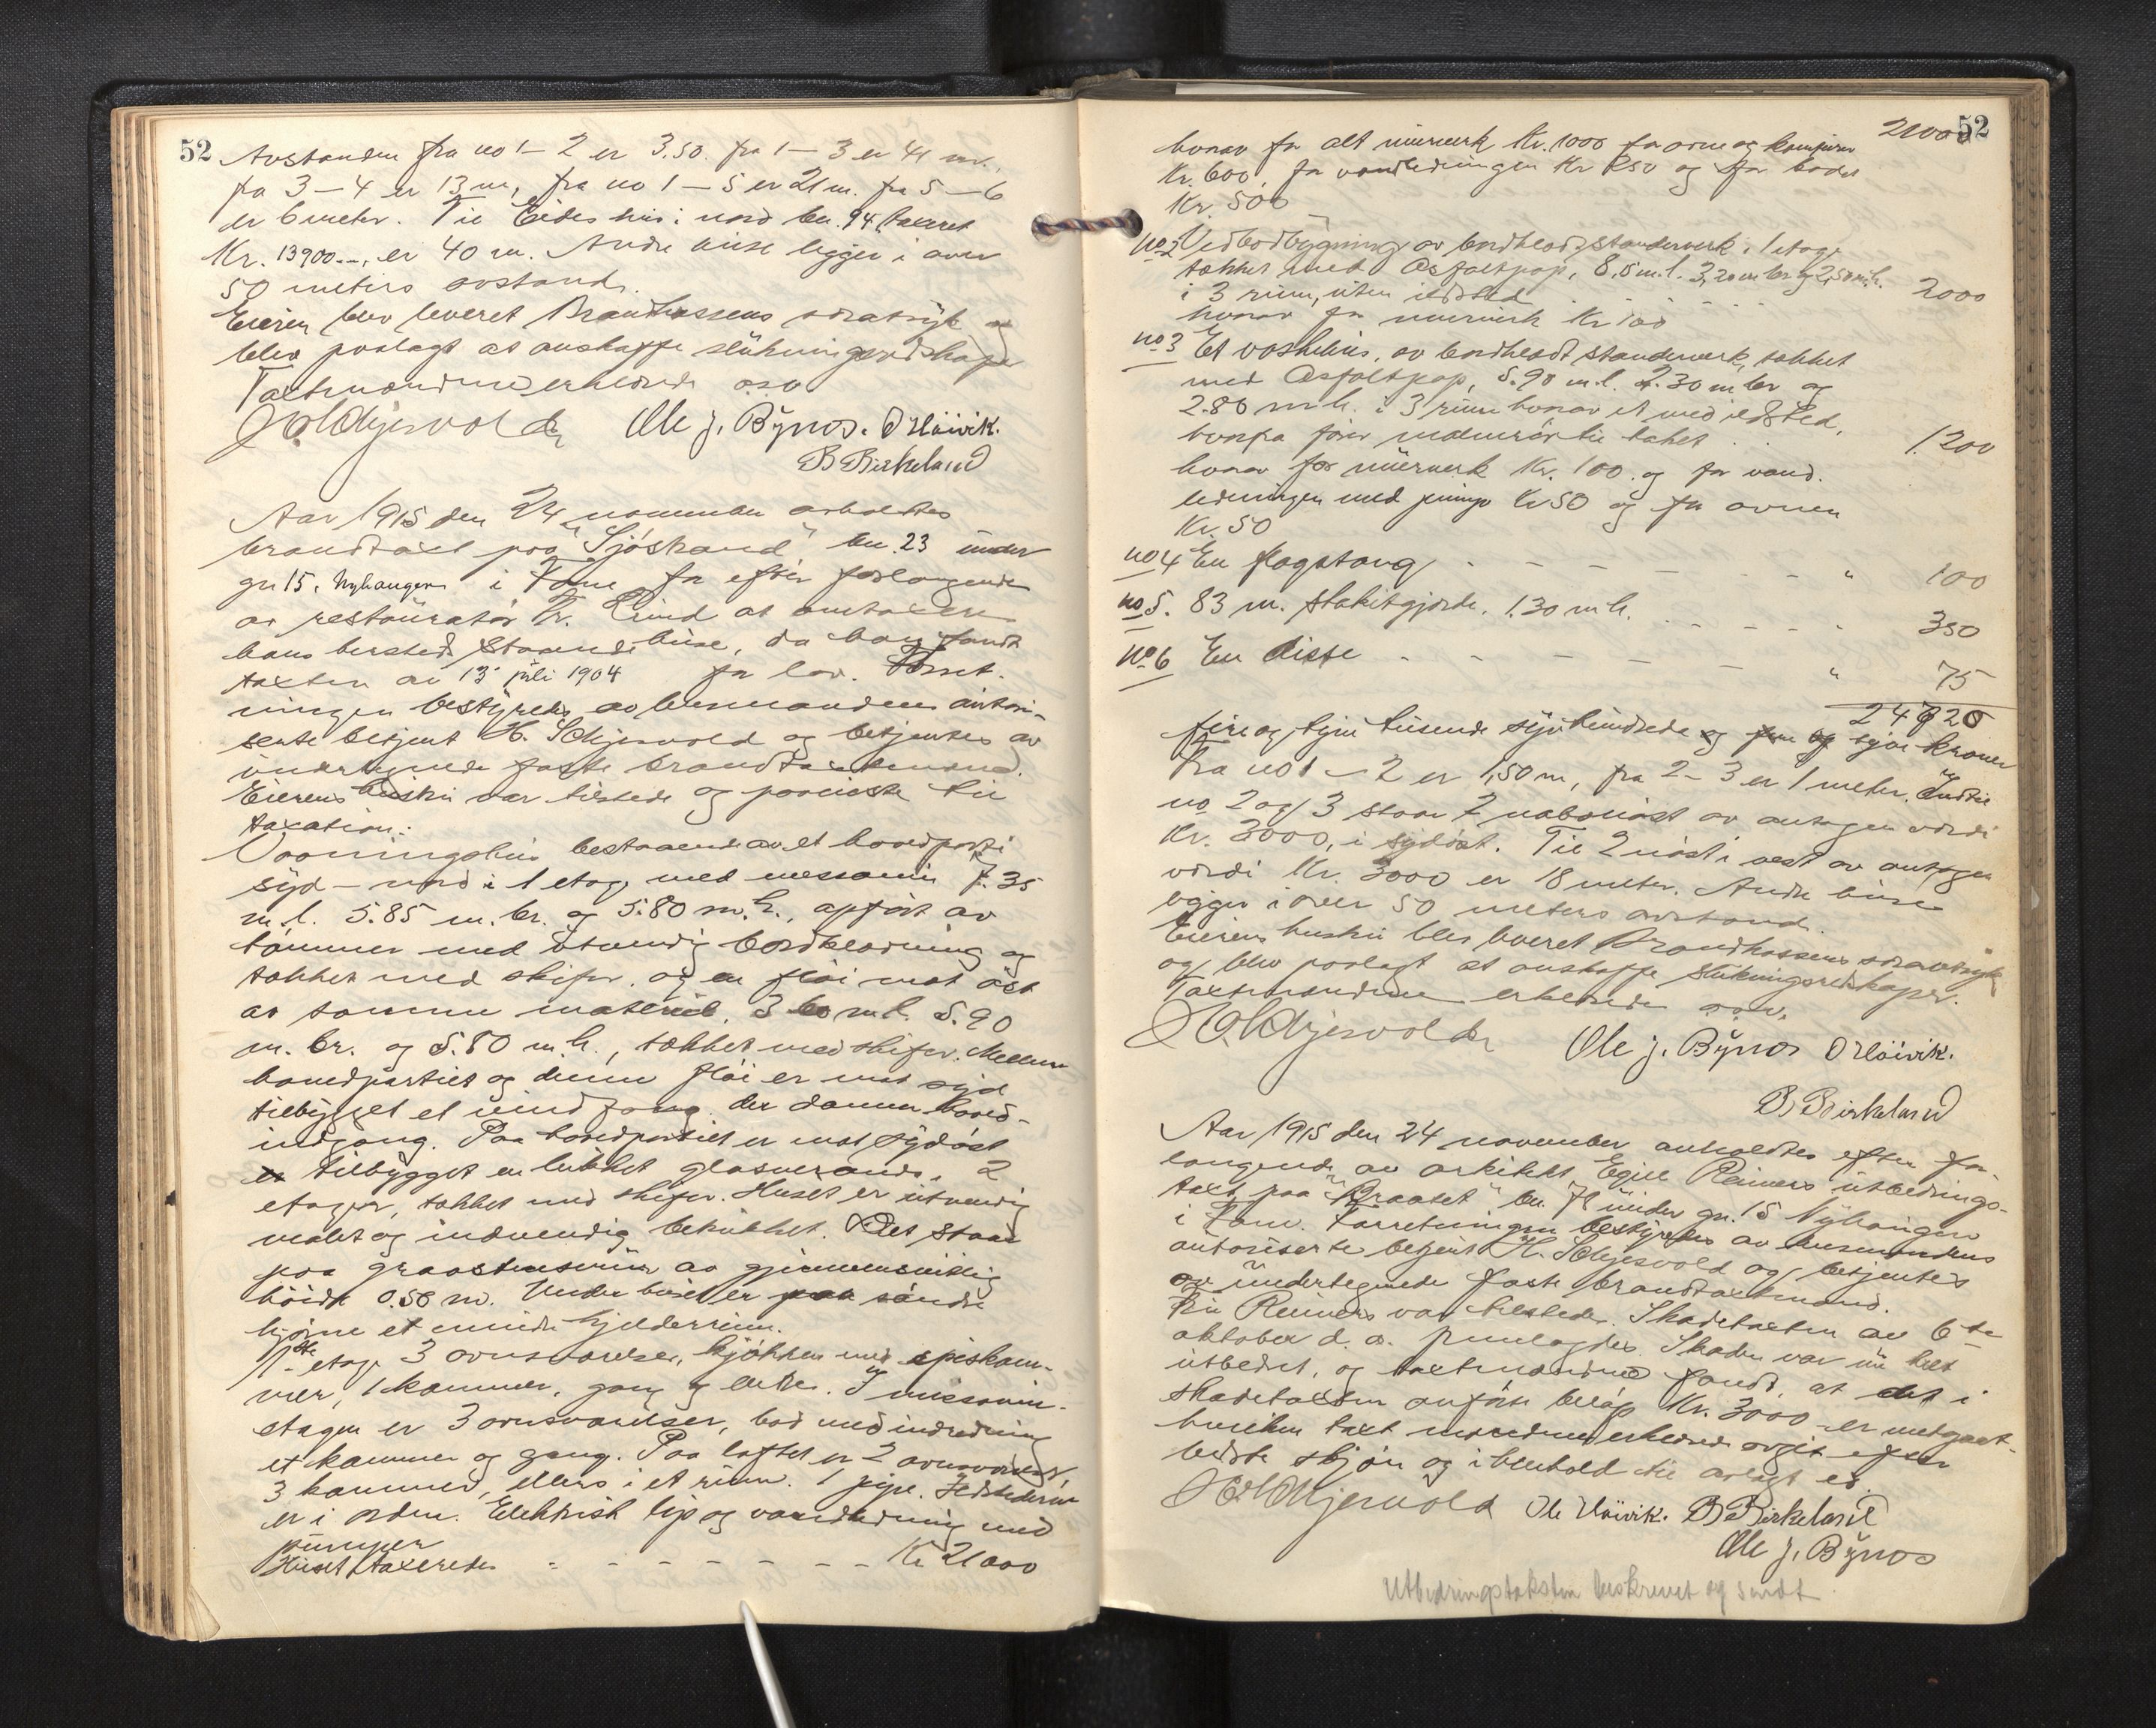 52
Avstanden fra no 1 – 2 er 3.50. fra 1 – 3 er 41 m.,
fra 3 – 4 er 13 m, fra no 1 – 5 er 21 m. fra 5 – 6
er 6 meter. Til Eides hus i nord bn. 94, taxeret
Kr. 13900.–, er 40 m. Andre huse ligger i over
50 meters avstand.
Eieren blev leveret Brandkassens særtryk og
blev paalagt at anskaffe slukningsredskaper
Taxtmændene erklærede o.s.v.
H. Schjesvold Ole J. Bynes. O Høivik.
B Birkeland
Aar 1915 den 24 november avholdtes
brandtaxt paa "Sjøstrand", bn. 23 under
gn 15, Nyhaugen i Fane for efter forlangende
av restauratør Kr. Lund at omtaxere
hans dersteds staaende huse, da han fandt
taxten av 13 juli 1904 for lav. Forret-
ningen bestyredes av lensmandens autori-
serte betjent H. Schjesvold og betjentes av
undertegnede faste brandtaxtmænd.
Eierens hustru var tilstede og paaviste til
taxation:
Vaaningshus bestaaende av et hovedparti
syd – nord i 1 etage med messanin 7.35
m. l. 5.85 m. br. og 5.80 m. h., opført av
tømmer med utvendig bordklædning og
tækket med skifer, og en fløi mot øst
av samme materiale, 3.60 m. l. 5.90
m. br. og 5.80 m. h., tækket med skifer. Mellem
hovedpartiet og denne fløi er mot syd
tilbygget et vindfang, der danner hoved-
indgang. Paa hovedpartiet er mot sydøst
tilbygget en lukket glasveranda, 2
etager, tækket med skifer. Huset er utvendig
malet og indvendig beklædt. Det staar
paa graastensmur av gjennemsnitlig
høide 0.50 m. Under huset er søndre
hjørne et mindre kjelderrum.
1ste etage 3 ovnsværelser, kjøkken med spiskam-
mer, 1 kammer, gang og entre. I messanin-
etagen er 3 ovnsværelser, bad med indredning
et kammer og gang. Paa loftet er 2 ovnsværelser,
3 kammer, ellers i et rum. 1 pipe. Ildstederne
er i orden. Elektrisk lys og vandledning med
pumper
Huset taxeredes – – – – – – – Kr 21000
52
21000
hvorav for alt murverk Kr. 1000 for ovne og komfurer
Kr. 600, for vandledningen Kr 250 og for badet
Kr. 500
no 2 Vedbodbygning av bordklædt standerverk, 1 etage,
tækket med Asfaltpap, 8,5 m.l. 3,20 m br og 2,50 m.h.
i 3 rum, uten ildsted . . . . . 2000
hvorav for murverk Kr 100
no 3 Et vaskehus, av bordklædt standerverk, tækket
med Asfaltpap, 5.90 m. l. 2.30 m br og
2.80 m h. i 3 rum hvorav et med ildsted,
hvorfra fører røør til taket . . 1200
hvorav for murverk Kr. 100. og for vand-
ledningen med pumpe Kr 50 og for ovnen
Kr. 50
no 4 En flagstang – – – – – – – " 100
no 5. 83 m. stakitgjærde, 1.30 m h. – – – – " 350
No 6 En disse – – – – – – – " 75
24725
fire og tyve tusende syv hundrede og fem og tyve kroner
Fra no 1 – 2 er 1,50 m, fra 2 – 3 er 1 meter. Indtil
no 2 og 3 staar 2 nabonøst av antagen værdi
Kr. 3000, i sydøst. Til 2 nøst i vest av antagen
værdi Kr. 3000 er 18 meter. Andre huse
ligger i over 50 meters avstand.
Eierens hustru blev leveret Brandkassens særavtryk
og blev paalagt at anskaffe slukningsredskaper.
Taxtmændene erklærede o.s.v.
H. Schjesvold Ole J. Bynes O Høivik.
B Birkeland
Aar 1915 den 24 november avholdtes efter for-
langende av arkitekt Egill Reimers utbedrings-
taxt paa "Braatet" bn. 71 under gn. 15 Nyhaugen
i Fane. Forretningen bestyredes av lensmandens
autoriserte betjent H. Schjesvold og betjentes
av undertegnede faste brandtaxtmænd.
Fru Reimers var tilstede. Skadetaxten av 6te
oktober d. a. fremlagdes. Skaden var nu helt
utbedret, og taxtmændene fandt, at det i
skadetaxten anførte beløp Kr. 3000 – er medgaat
hvilken taxt mændene erklærede avgit efter
bedste skjøn og i henhold til avlagt ed.
H. Schjesvold Ole Høivik. B Birkeland
Ole J. Bynes
Utbedringstaksten beskrevet og sendt